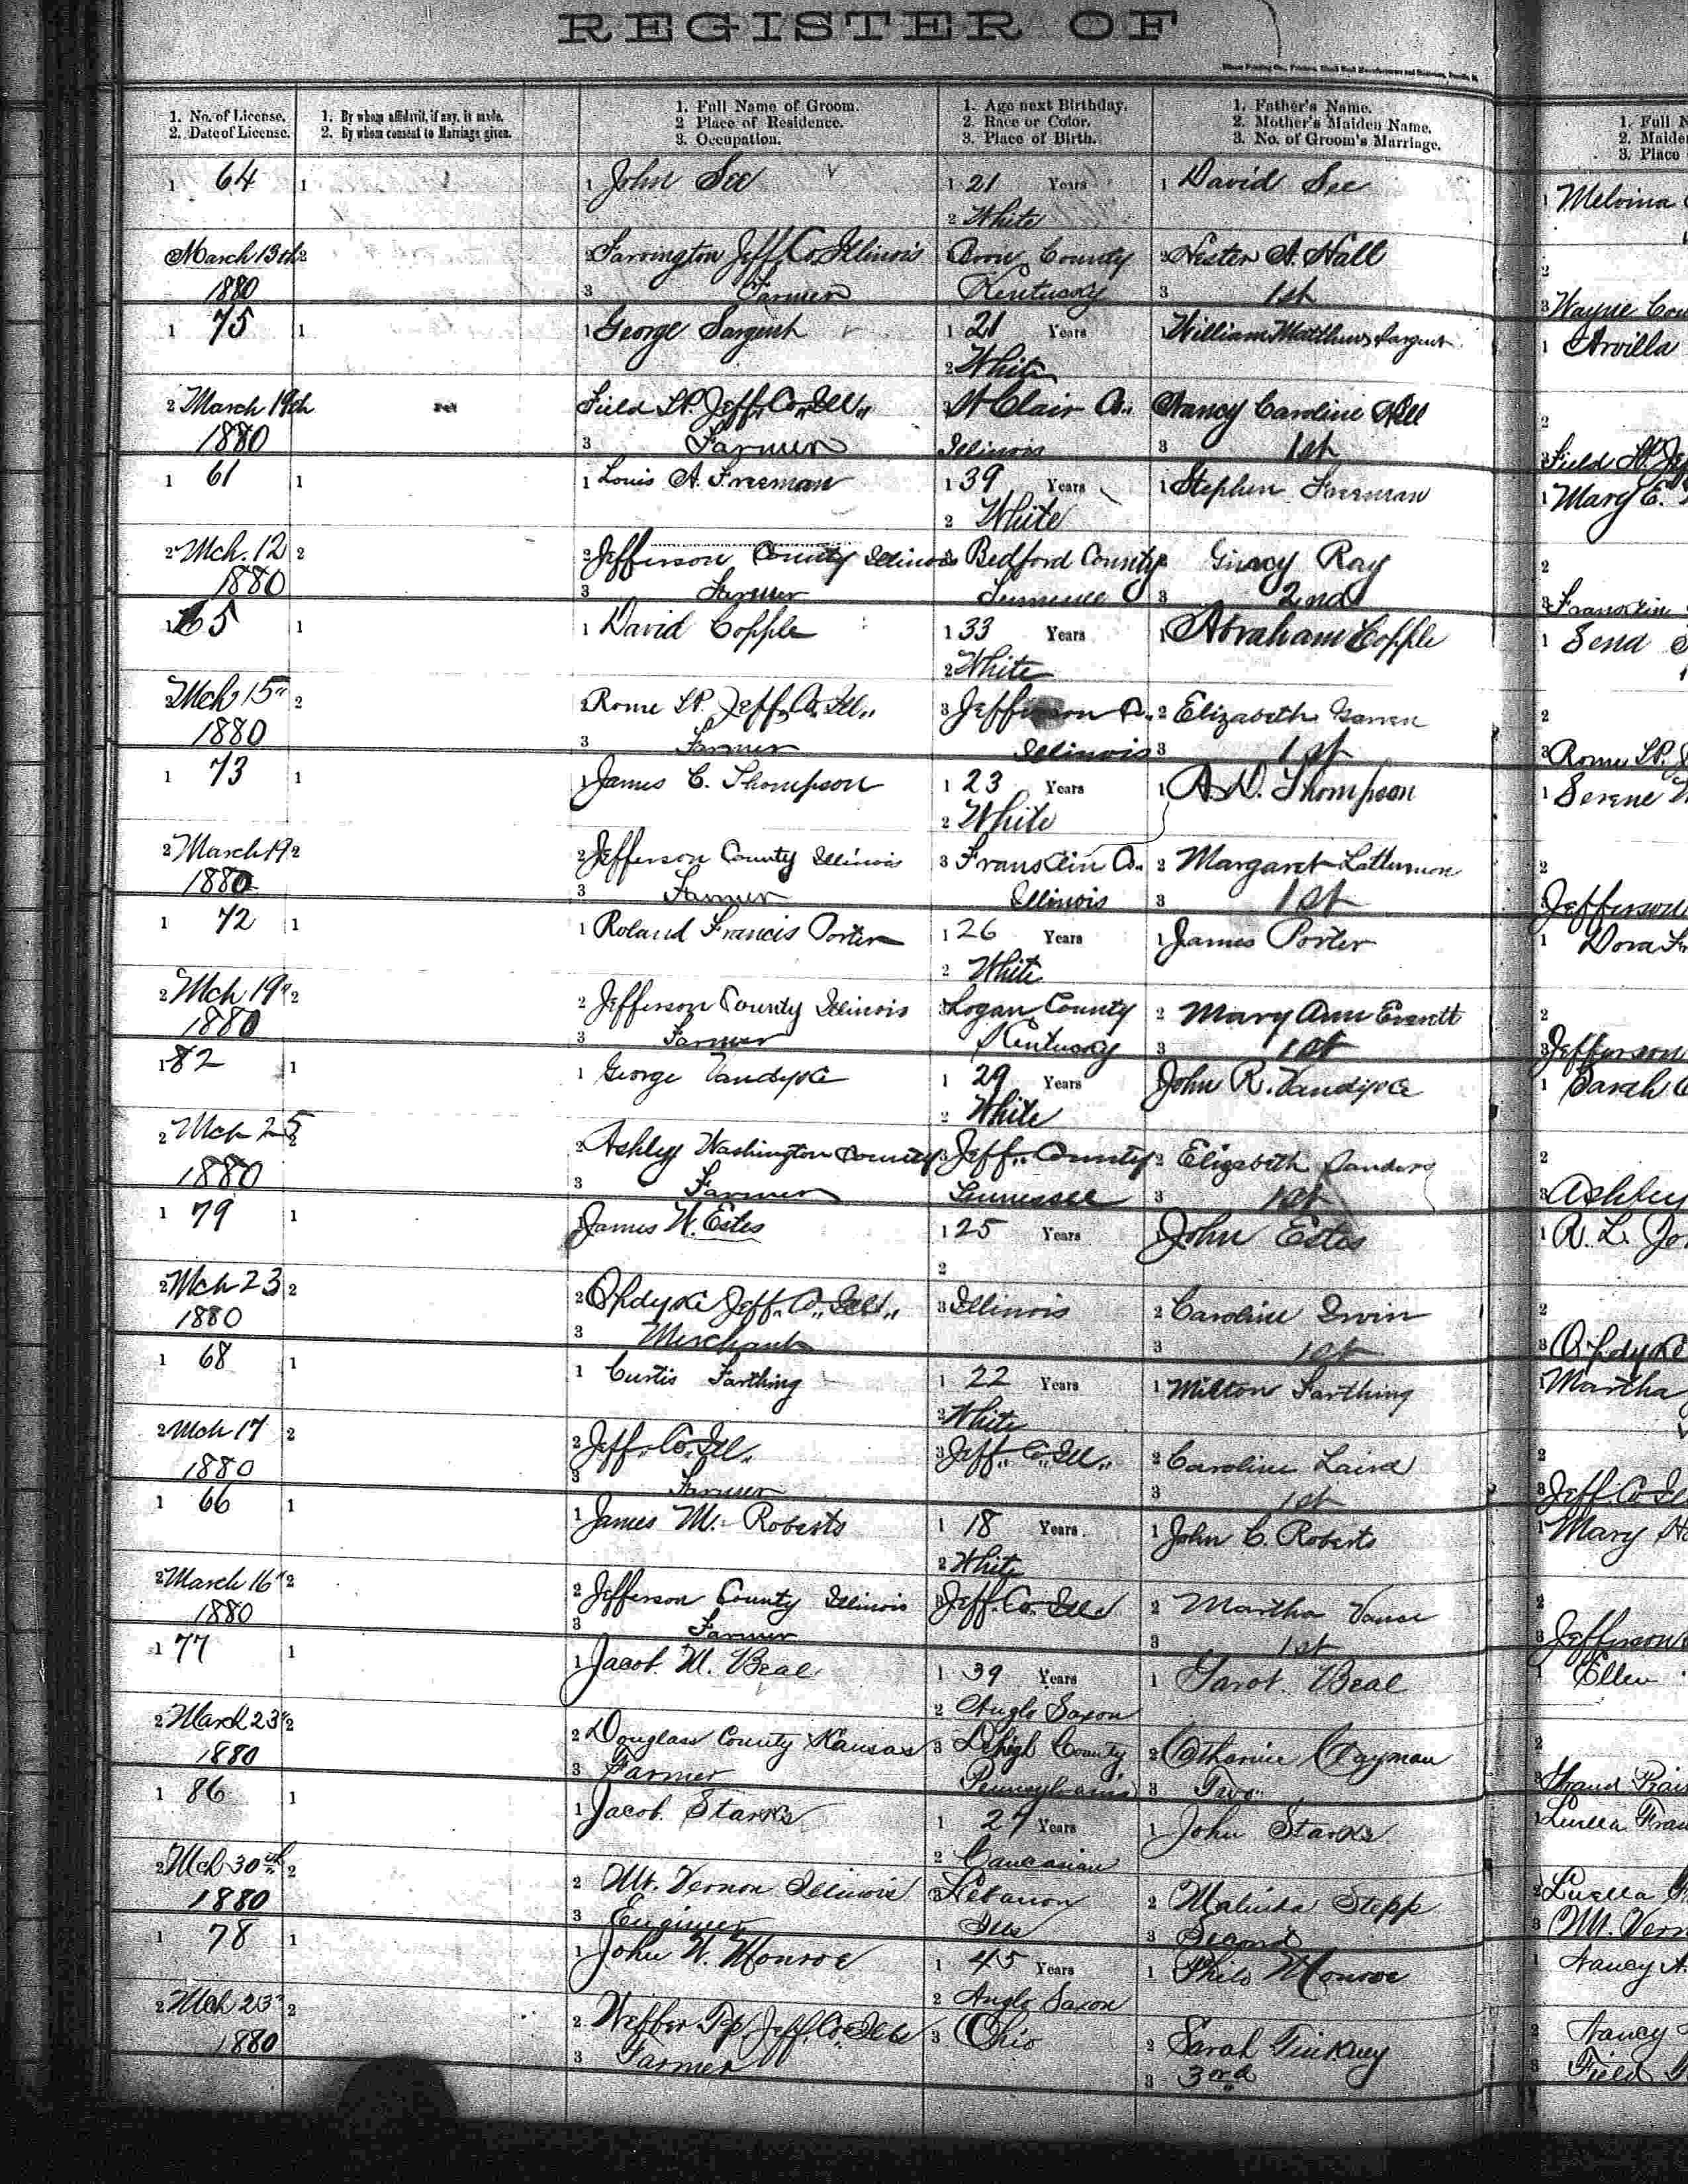 REGISTER OF
1. No. of License. 1. By whom affidavit, if any, is made. 1. Full Name of Groom. 1. Age next Birthday. 1. Father's Name. 1. Full
2. Date of License. 2. By whom consent to Marriage given. 2 Place of Residence. 2. Race or Color. 2. Mother's Maiden Name. 2. Maiden
3. Occupation. 3. Place of Birth. 3. No. of Groom's Marriage. 3. Place
1 64 1 1 John See 1 21 Years 1 David See 1 Melvina
2 White
March 13th 2 2 Farrington Jeff. Co. Illinois Boone County 2 Hester A. Hall 2
1880 3 Farmer Kentucky 3 1st 3 Wayne Cou
1 75 1 1 George Sargent 1 21 Years 1 William Matthew Sargent 1 Arvilla
2 White
2 March 19th Field Tp. Jeff. Co. Ill. St Clair Co. Nancy Caroline Hill 2
1880 3 Farmer Illinois 3 1st 3 Field Tp. Jef
1 61 1 1 Louis A. Freeman 1 39 Years 1 Stephen Freeman 1 Mary E.
2 White
2 Mch. 12 2 2 Jefferson County Illinois 3 Bedford County 2 Ray 2
1880 3 Farmer Tennessee 3 2nd 3 Franklin
1 65 1 1 David Copple 1 33 Years 1 Abraham Copple 1 Send
2 White
2 Mch 15" 2 2 Rome Tp. Jeff. Co. Ill. 3 Jefferson Co. 2 Elizabeth 2
1880 3 Farmer Illinois 3 1st 3 Rome Tp. J
1 73 1 1 James C. Thompson 1 23 Years 1 A. D. Thompson 1 Serene
2 White
2 March 19 2 2 Jefferson County Illinois 3 Franklin Co. 2 Margaret 2
1880 3 Farmer Illinois 3 1st 3 Jefferson
1 72 1 1 Roland Francis Porter 1 26 Years 1 James Porter 1 Dora
2 White
2 Mch 19" 2 2 Jefferson County Illinois 3 Logan County 2 Mary Ann Everett 2
1880 3 Farmer Kentucky 3 1st 3 Jefferson
1 82 1 1 George Vandyke 1 29 Years John R. Vandyke 1 Sarah
2 White
2 Mch 25 2 2 Ashley Washington County 3 Jeff. County 2 Elizabeth Sanders 2
1880 3 Farmer Tennessee 3 1st 3 Ashley
1 79 1 1 James W. Estes 1 25 Years 1 John Estes 1 R. L. Jo
2
2 Mch 23 2 2 Opdyke Jeff. Co. Ill. 3 Illinois 2 Caroline Irvin 2
1880 3 Merchant 3 1st 3 Opdyke
1 68 1 1 Curtis Farthing 1 22 Years 1 Milton Farthing 1 Martha
2 White
2 Mch 17 2 2 Jeff. Co. Ill. 3 Jeff. Co. Ill. 2 Caroline Laird 2
1880 3 Farmer 3 1st 3 Jeff. Co Il
1 66 1 1 James M. Roberts 1 18 Years. 1 John C. Roberts 1 Mary
2 White
2 March 16" 2 2 Jefferson County Illinois 3 Jeff. Co. Ill. 2 Martha Vance 2
1880 3 Farmer 3 1st 3 Jefferson
1 77 1 1 Jacob M. Beal 1 39 Years 1 Beal 1 Ellen
2 Anglo Saxon
2 March 23" 2 2 Douglass County Kansas 3 Lehigh County 2 Catharine 2
1880 3 Farmer Pennsylvania 3 Two 3 Grand Prai
1 86 1 1 Jacob Starks 1 27 Years 1 John Starks 1 Luella Fra
2 Caucasian
2 Mch 30th 2 2 Mt. Vernon Illinois 3 Lebanon 2 Malinda Stepp 2 Luella
1880 3 Engineer Ills 3 Second 3 Mt. Vern
1 78 1 1 John W. Monroe 1 45 Years 1 Philo Monroe 1 Nancy A.
2 Anglo Saxon
2 Mch 23" 2 2 Webber Tp Jeff. Co. Ills 3 Ohio 2 Sarah Tinkney 2 Nancy
1880 3 Farmer 3 3rd 3 Field